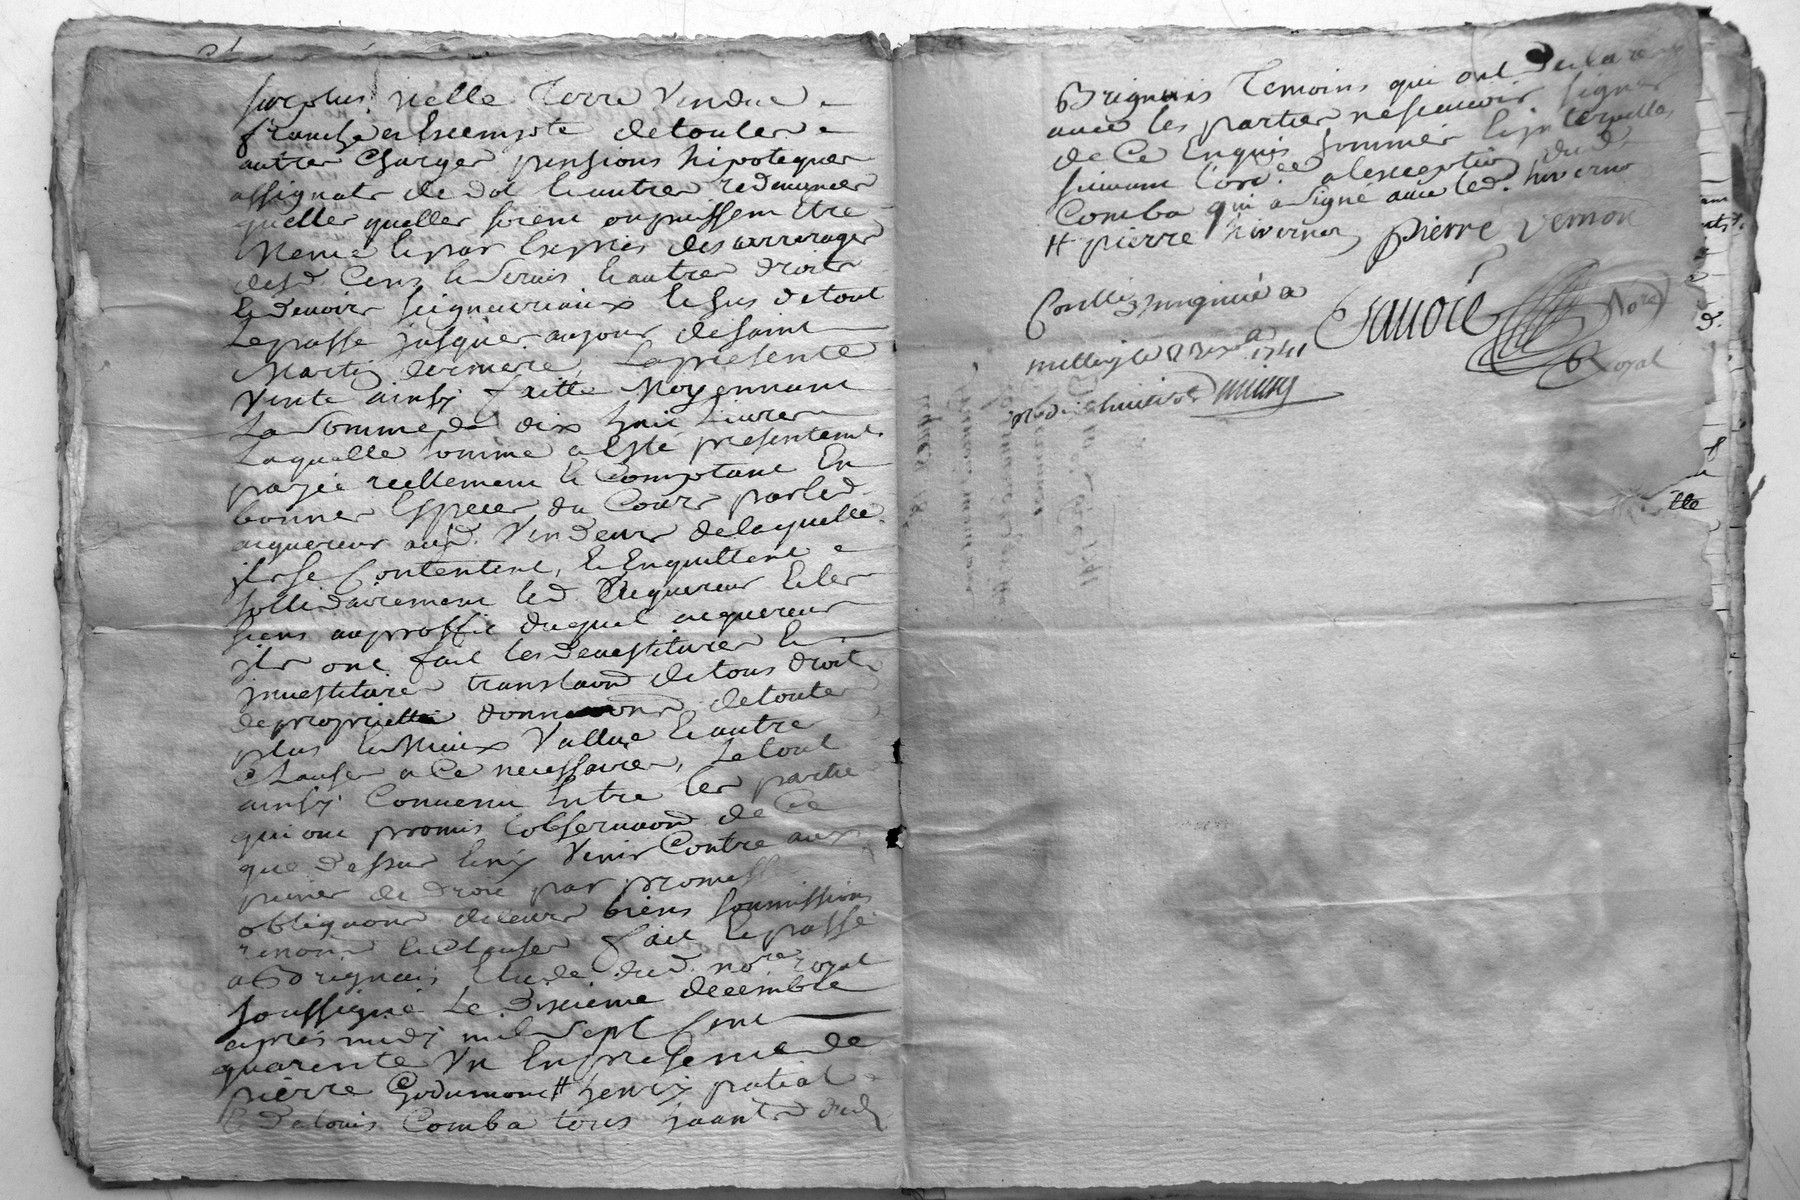 surplus icelle Terre Vendue
franche et Exempte de toutes
autres Charges pensions hipoteques
assignats de dot et autres redevances
quelles quelles soient ou puissent Etre
Meme et par Exprés des arrerages
desd. Cens et Servis et autres droits
et devoirs seigneuriaux et sus de tout
Le passé jusques au jour de saint
Martin derniere, La presente
Vente ainsy faitte Moyennant
La Somme de dix huit Livres
Laquelle somme a Esté presentemt.
payée reellement et Comptant En
bonnes Especes du Cours par led.
acquereur auxd. Vendeurs de laquelle
ils se Contentent, et Enquittent
sollidairement led. acquereur et les
siens au proffit duquel acquereur
ils ont fait les devestitures et
investitures translaõnd de tous droits
de proprietté donnaõnd de toutes
plus et Mieux Vallue et autres
Clauses a Ce necessaires, Le tout
ainsy Convenu Entre les partie
qui ont promis l'observaõnd de Ce
que dessus et ny Venir Contre aux
peines de droit par promesses
obligaõns de leurs biens soumissions
renonõns et Clauses fait et passé
a Brignais Etude dud. nore. royal
soussigné Le dixieme decembre
aprés midy mil Sept Cent
quarente Un En presence de
pierre Godumont # henry patiat
et de Louis Comba tous hāants dud.
Brignais Temoins qui ont declaré
avec les parties ne scavoir signer
de Ce Enquis sommés et interpellés
suivant l'ordce. a l'exception dud.
Comba qui a Signé avec led. hivernon
# pierre hivernon pierre vernon
Controllé a
millery le 1741
Favore Nore.
Royal